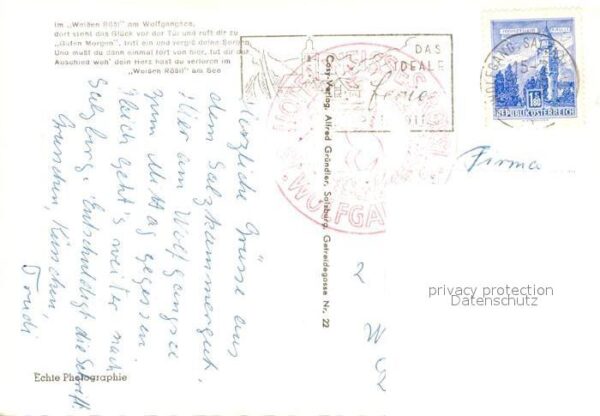 Im "Weißen Rößl" am Wolfgangsee,
dort steht das Glück vor der Tür und ruft dir zu
"Guten Morgen", tritt ein und vergiß deine Sorgen.
Und mußt du dann einmal fort von hier, tut dir der
Abschied weh' dein Herz hast du verloren im
"Weißen Rößl" am See
DAS
IDEALE
WOLFGANG
REPUBLIK ÖSTERREICH
Cosy-Verlag, Alfred Gründler, Salzburg, Getreidegasse Nr. 22
Herzliche Grüsse aus
dem Salzkammergut.
Hier am Wolfgangsee
zum Mittag gegessen.
Gleich geht's weiter nach
Salzburg. Entschuldigt die Schrift.
Trudi
Firma
2
W
privacy protection
Datenschutz
Echte Photographie